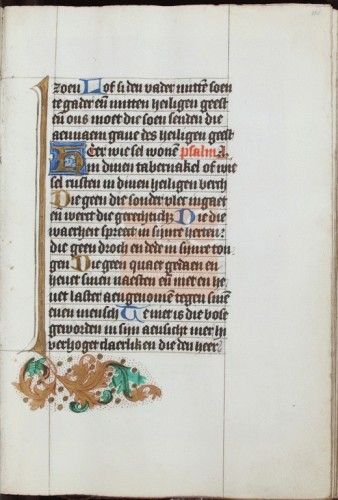 zoen Lof si den vader mittē soen
te gader eñ mitten heiligen geest
eñ ons moet die soen senden die
aennaem gaue des heiligen geest
Heer wie sel wonē psalm
in dinen tabernakel of wie
sel rusten in dinen heiligen berch
Die geen die sonder vlec ingaet
eñ wert die gerechticheit Die die
waerheit spreect in sijnre herten:
die geen droch en dede in sijnre ton
gen Die geen quaet gedaen en
heuet sinen naesten eñ niet en he
uet laster aengenomē tegen sinē
euen mensch Te niet is die bose
geworden in sijn aensicht mer hi
verhoget claerlik en die den heer